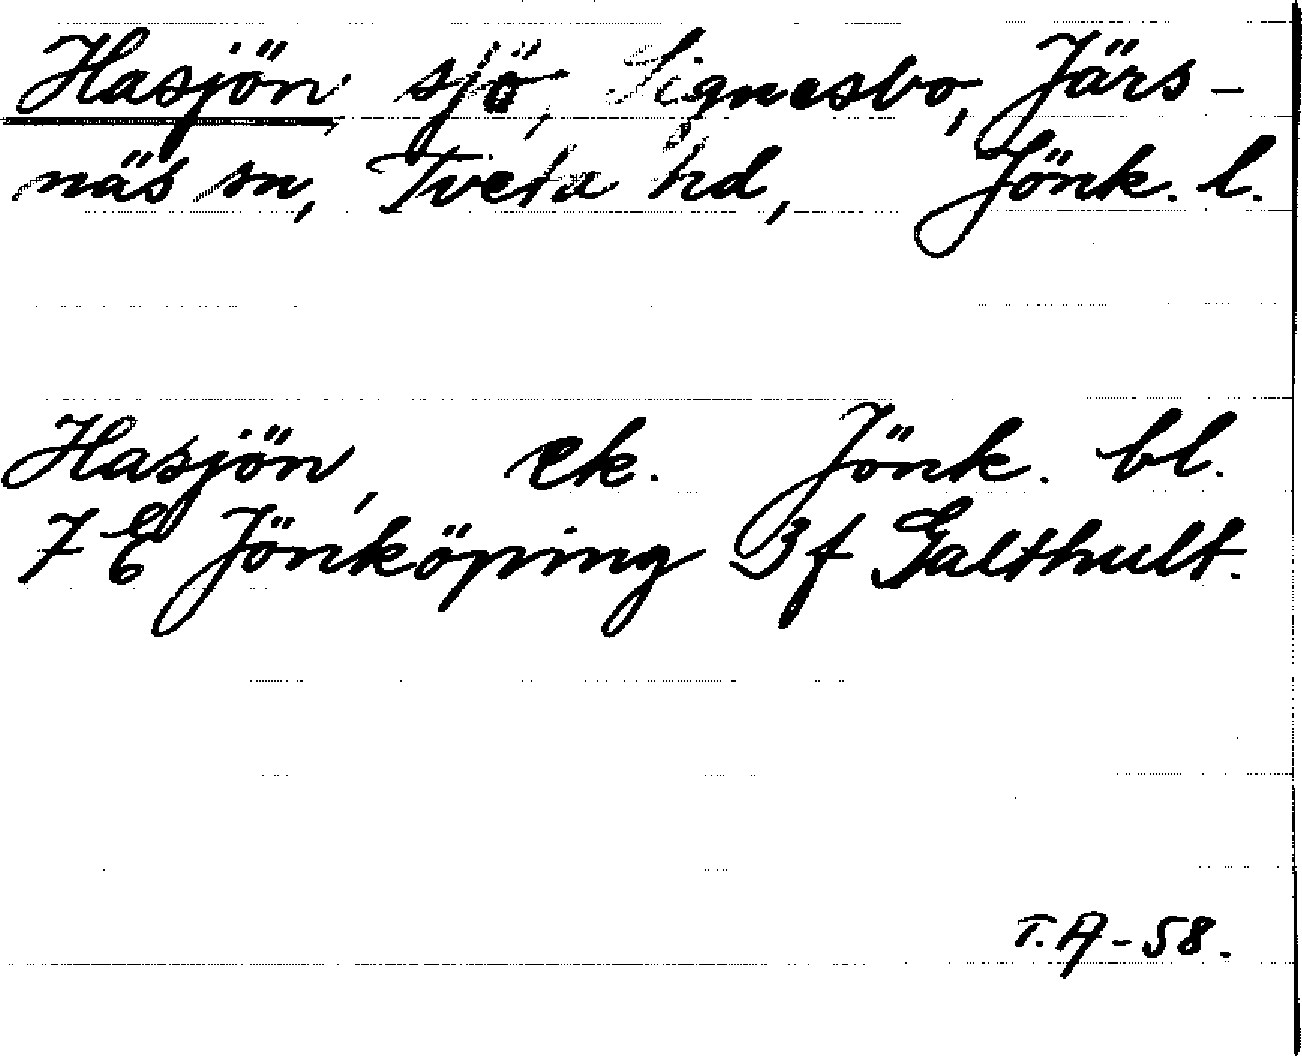 Hasjön sjö, Signesbo, Järs-
näs sn, Tveta hd, Jönk. l.
Hasjön, ek. Jönk. bl.
7 E Jönköping 3 f Galthult.
T.A-58.